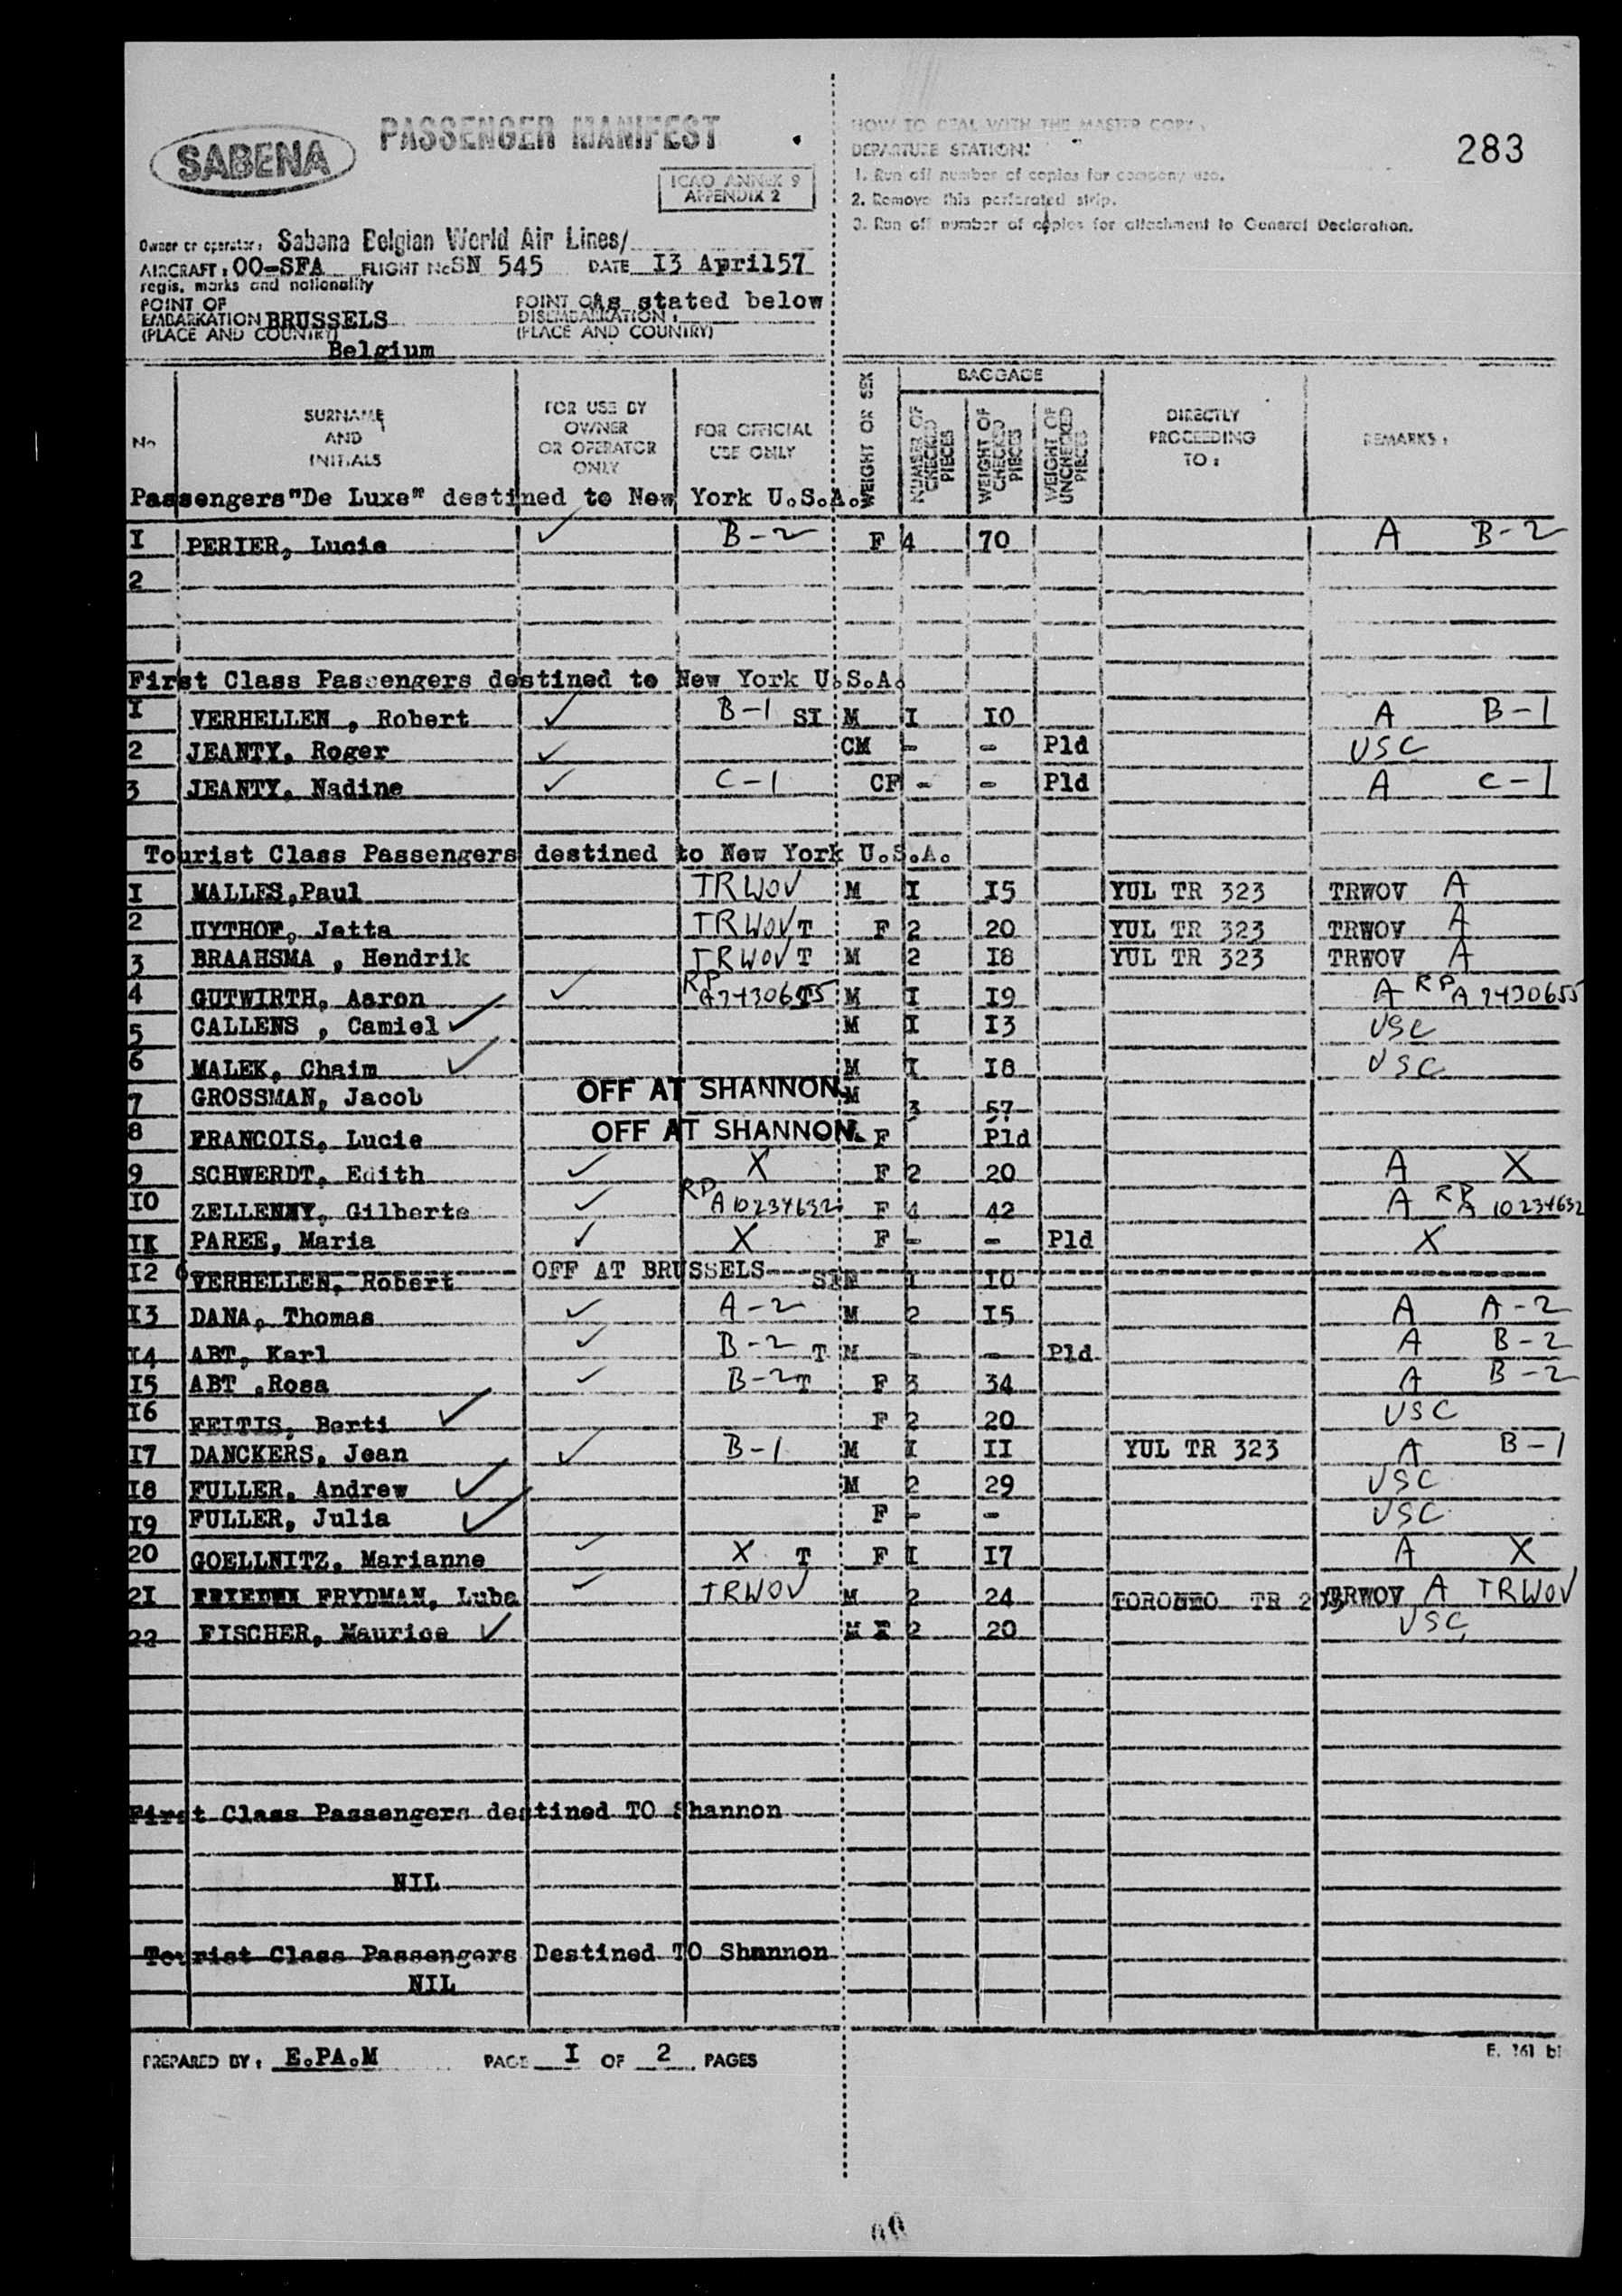 SABENA
PASSENGER MANIFEST
ICAO ANNEX 9
APPENDIX 2
HOW TO DEAL WITH THE MASTER COPY :
DEPARTURE STATION:
1. Run off number of copies for company use.
2. Remove this perforated strip.
3. Run off number of copies for attachment to General Declaration.
283
Owner or operator: Sabena Belgian World Air Lines/
AIRCRAFT: OO-SFA FLIGHT No SN 545 DATE I3 April57
regis. marks and nationality
POINT OF EMBARKATION BRUSSELS
(PLACE AND COUNTRY)
Belgium
POINT OF DISEMBARKATION: As stated below
(PLACE AND COUNTRY)
No
SURNAME AND INITIALS
FOR USE BY OWNER OR OPERATOR ONLY
FOR OFFICIAL USE ONLY
WEIGHT OR SEX
BAGGAGE
NUMBER OF CHECKED PIECES
WEIGHT OF CHECKED PIECES
WEIGHT OF UNCHECKED PIECES
DIRECTLY PROCEEDING TO :
REMARKS :
Passengers"De Luxe" destined to New York U.S.A.
I PERIER, Lucie ✓ B-2 F 4 70 A B-2
2
First Class Passengers destined to New York U.S.A.
I VERHELLEN , Robert ✓ B-1 SI M I I0 A B-1
2 JEANTY, Roger ✓ CM - - Pld USC
3 JEANTY, Nadine ✓ C-1 CF - - Pld A C-1
Tourist Class Passengers destined to New York U.S.A.
I MALLES,Paul TRWOV M I I5 YUL TR 323 TRWOV A
2 UYTHOF, Jetta TRWOV T F 2 20 YUL TR 323 TRWOV A
3 BRAAHSMA , Hendrik TRWOV T M 2 I8 YUL TR 323 TRWOV A
4 GUTWIRTH, Aaron ✓ RP A7430655 M I I9 A RP A7430655
5 CALLENS , Camiel ✓ M I I3 USC
6 MALEK, Chaim ✓ M I I8 USC
7 GROSSMAN, Jacob OFF AT SHANNON. M 3 57
8 FRANCOIS, Lucie OFF AT SHANNON. F Pld
9 SCHWERDT, Edith ✓ X F 2 20 A X
I0 ZELLENNY, Gilberte ✓ RP A10234632 F 4 42 A RP A 10234632
II PAREE, Maria ✓ X F - - Pld X
I2 VERHELLEN, Robert OFF AT BRUSSELS I I0
I3 DANA, Thomas ✓ A-2 M 2 I5 A A-2
I4 ABT, Karl ✓ B-2 T M - - Pld A B-2
I5 ABT ,Rosa ✓ B-2 T F 3 34 A B-2
I6 FEITIS, Berti ✓ F 2 20 USC
I7 DANCKERS, Jean ✓ B-1 M I II YUL TR 323 A B-1
I8 FULLER, Andrew ✓ M 2 29 USC
I9 FULLER, Julia ✓ F - - USC
20 GOELLNITZ, Marianne ✓ X T F I I7 A X
2I FRYDMAN, Luba ✓ TRWOV M 2 24 TORONTO TR TRWOV A TRWOV
22 FISCHER, Maurice ✓ M 2 20 USC
First Class Passengers destined TO Shannon
NIL
Tourist Class Passengers Destined TO Shannon
NIL
PREPARED BY: E.PA.M PAGE I OF 2 PAGES